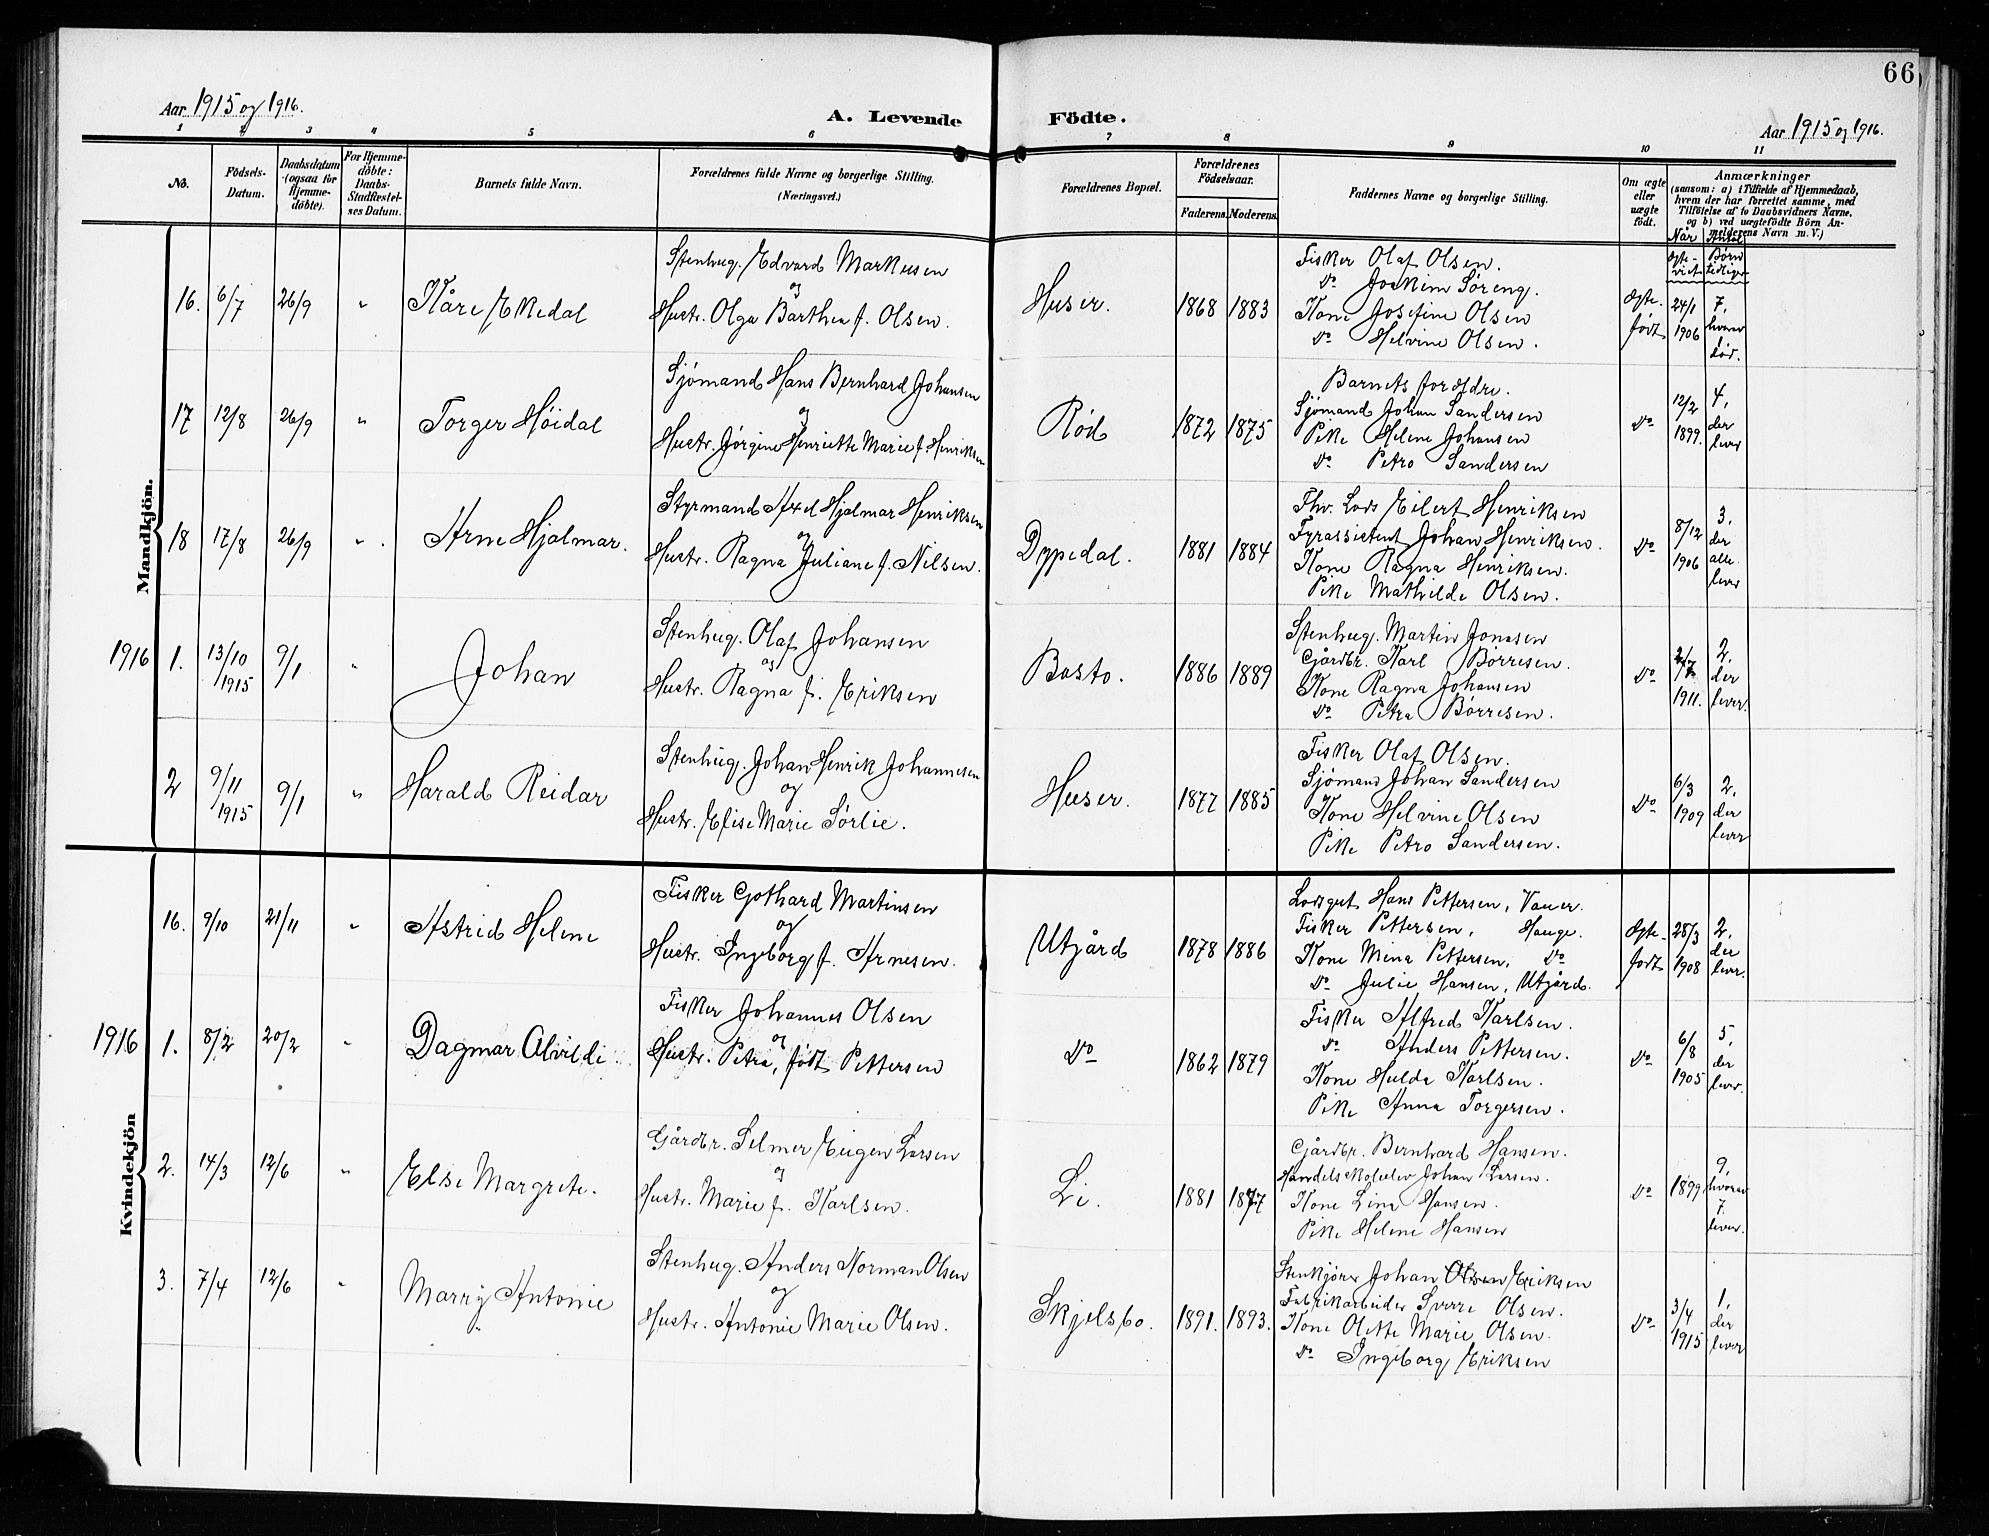 66
Aar 1915 og 1916.
A. Levende Födte.
Aar 1915 og 1916.
1 2 3 4 5 6 7 8 9 10 11
No.
Födsels-Datum.
Daabsdatum (ogsaa for Hjemme-döbte).
For Hjemme-döbte: Daabs-Stadfæstel-ses Datum.
Barnets fulde Navn.
Forældrenes fulde Navne og borgerlige Stilling. (Næringsvei.)
Forældrenes Bopæl.
Forældrenes Födselsaar.
Faderens. Moderens.
Faddernes Navne og borgerlige Stilling.
Om ægte eller uægte födt.
Anmærkninger
(saasom: a) i Tilfælde af Hjemmedaab,
hvem der har forrettet samme, med
Tilföielse af to Daabsvidners Navne,
og b) ved uægtefödte Börn An-
melderens Navn m. V.)
Når ægte-viet
Antal Børn tidligere
Mandkjön.
16. 6/7 26/9 " Kåre Ekedal
Stenhug. Edvard Markusen
og
Hustr. Olga Barthea f. Olsen.
Huser. 1868 1883
Fisker Olaf Olsen.
do Joakim Söreng.
Kone Josefine Olsen
do Helvine Olsen.
Ægte-født 24/1 1906 7, hvorav død.
17 12/8 26/9 " Torger Høidal
Sjömand Hans Bernhard Johansen
og
Hustr. Jörgine Henriette Marie f. Henriksen
Rød 1872 1875
Barnets forældre.
Sjömand Johan Sandersen
Pike Helene Johansen
do Petra Sandersen
do 12/2 1899. 4, der lever
18 17/8 26/9 " Arne Hjalmar.
Styrmand Axel Hjalmar Henriksen
og
Hustr. Ragna Juliane f. Nilsen.
Dypedal. 1881 1884
Fhv. Lods Eilert Henriksen
Fyrassistent Johan Henriksen.
Kone Ragna Henriksen.
Pike Mathilde Olsen.
do 8/12 1906 3, der alle lever
1916 1. 13/10 1915 9/1 " Johan
Stenhug. Olaf Johansen
og
Hustr. Ragna f. Eriksen
Basto. 1886 1889
Stenhug. Martin Jonasen
Gårdbr. Karl Børresen.
Kone Ragna Johansen
do Petra Børresen.
do 2/7 1911. 2, der lever.
2 9/11 1915 9/1 " Harald Reidar
Stenhug. Johan Henrik Johannesen
og
Hustr. Elise Marie Sørlie.
Huser. 1877 1885
Fisker Olaf Olsen.
Sjömand Johan Sandersen
Kone Helvine Olsen
Pike Petra Sandersen.
do 6/3 1909 2, der lever
Kvindekjön
16. 9/10 21/11 " Astrid Helene
Fisker Gothard Martinsen
og
Hustr. Ingeborg f. Arnesen.
Utgård 1878 1886
Lodsgut Hans Pettersen, Vauer.
Fisker Pettersen, Hauge.
Kone Mina Pettersen, do
do Julie Hansen, Utgård.
Ægte-født 28/3 1908 2, der lever.
1916 1. 8/2 20/2 " Dagmar Alvilde
Fisker Johannes Olsen
og
Hustr. Petra, født Pettersen
do 1862 1879
Fisker Alfred Karlsen.
do Anders Pettersen.
Kone Hulda Karlsen.
Pike Anna Torgersen.
do 6/8 1905 5, der lever.
2. 14/3 12/6 " Else Margrete.
Gårdbr. Selmer Eugen Larsen
og
Hustr. Marie f. Karlsen.
Li. 1881 1877
Gårdbr. Bernhard Hansen.
Handelsskoleelev Johan Larsen.
Kone Lina Hansen.
Pike Helene Hansen
do 1899 9, hvorav 7 lever.
3. 7/4 12/6 " Marry Antonie
Stenhug. Anders Norman Olsen
og
Hustr. Antonie Marie Olsen.
Skjelsbo. 1891. 1893.
Stenkjörer Johan Olsen Eriksen
Fabrikarbeider Sverre Olsen.
Kone Olette Marie Olsen.
do Ingeborg Eriksen
do 3/4 1915 1, der lever